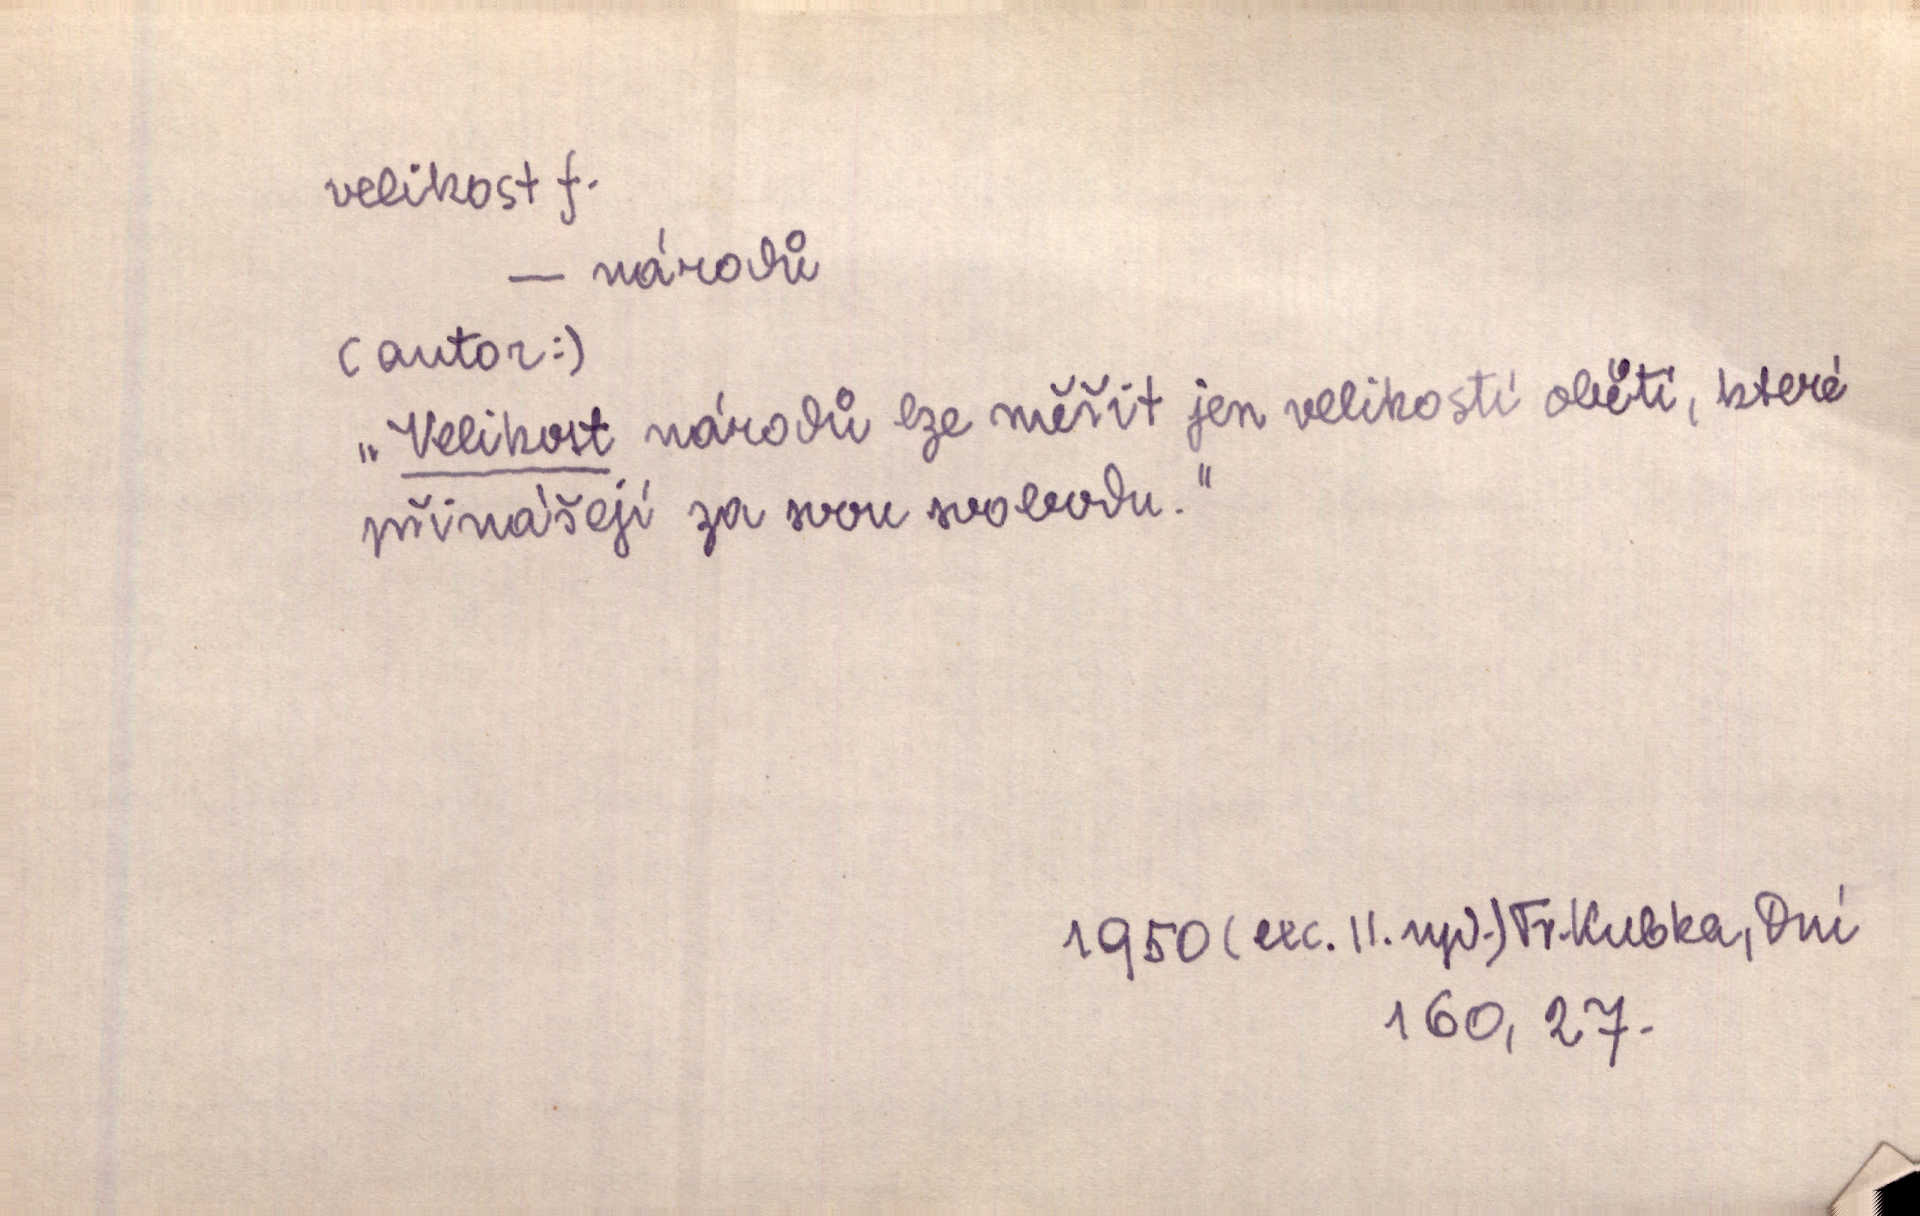 velikost f.
— národů
(autor:)
„Velikost národů lze měřit jen velikostí obětí, které
přinášejí za svou svobodu."
1950 (exc. II. vyd.) Fr. Kubka, Dni
160, 27.